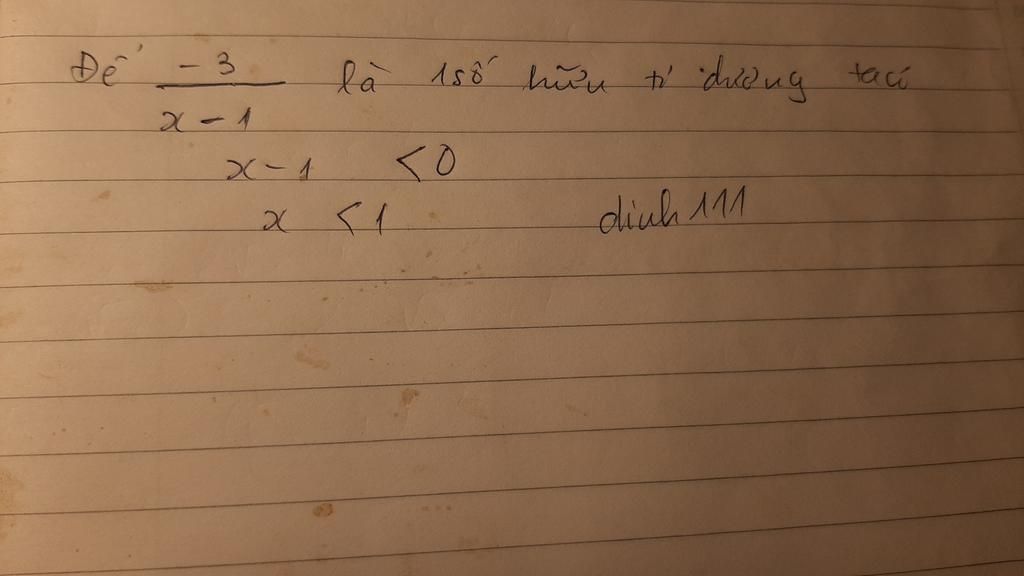 Để -3/x-1 là 1 số hữu tỉ dương ta có
x-1 < 0
x < 1 dinh111